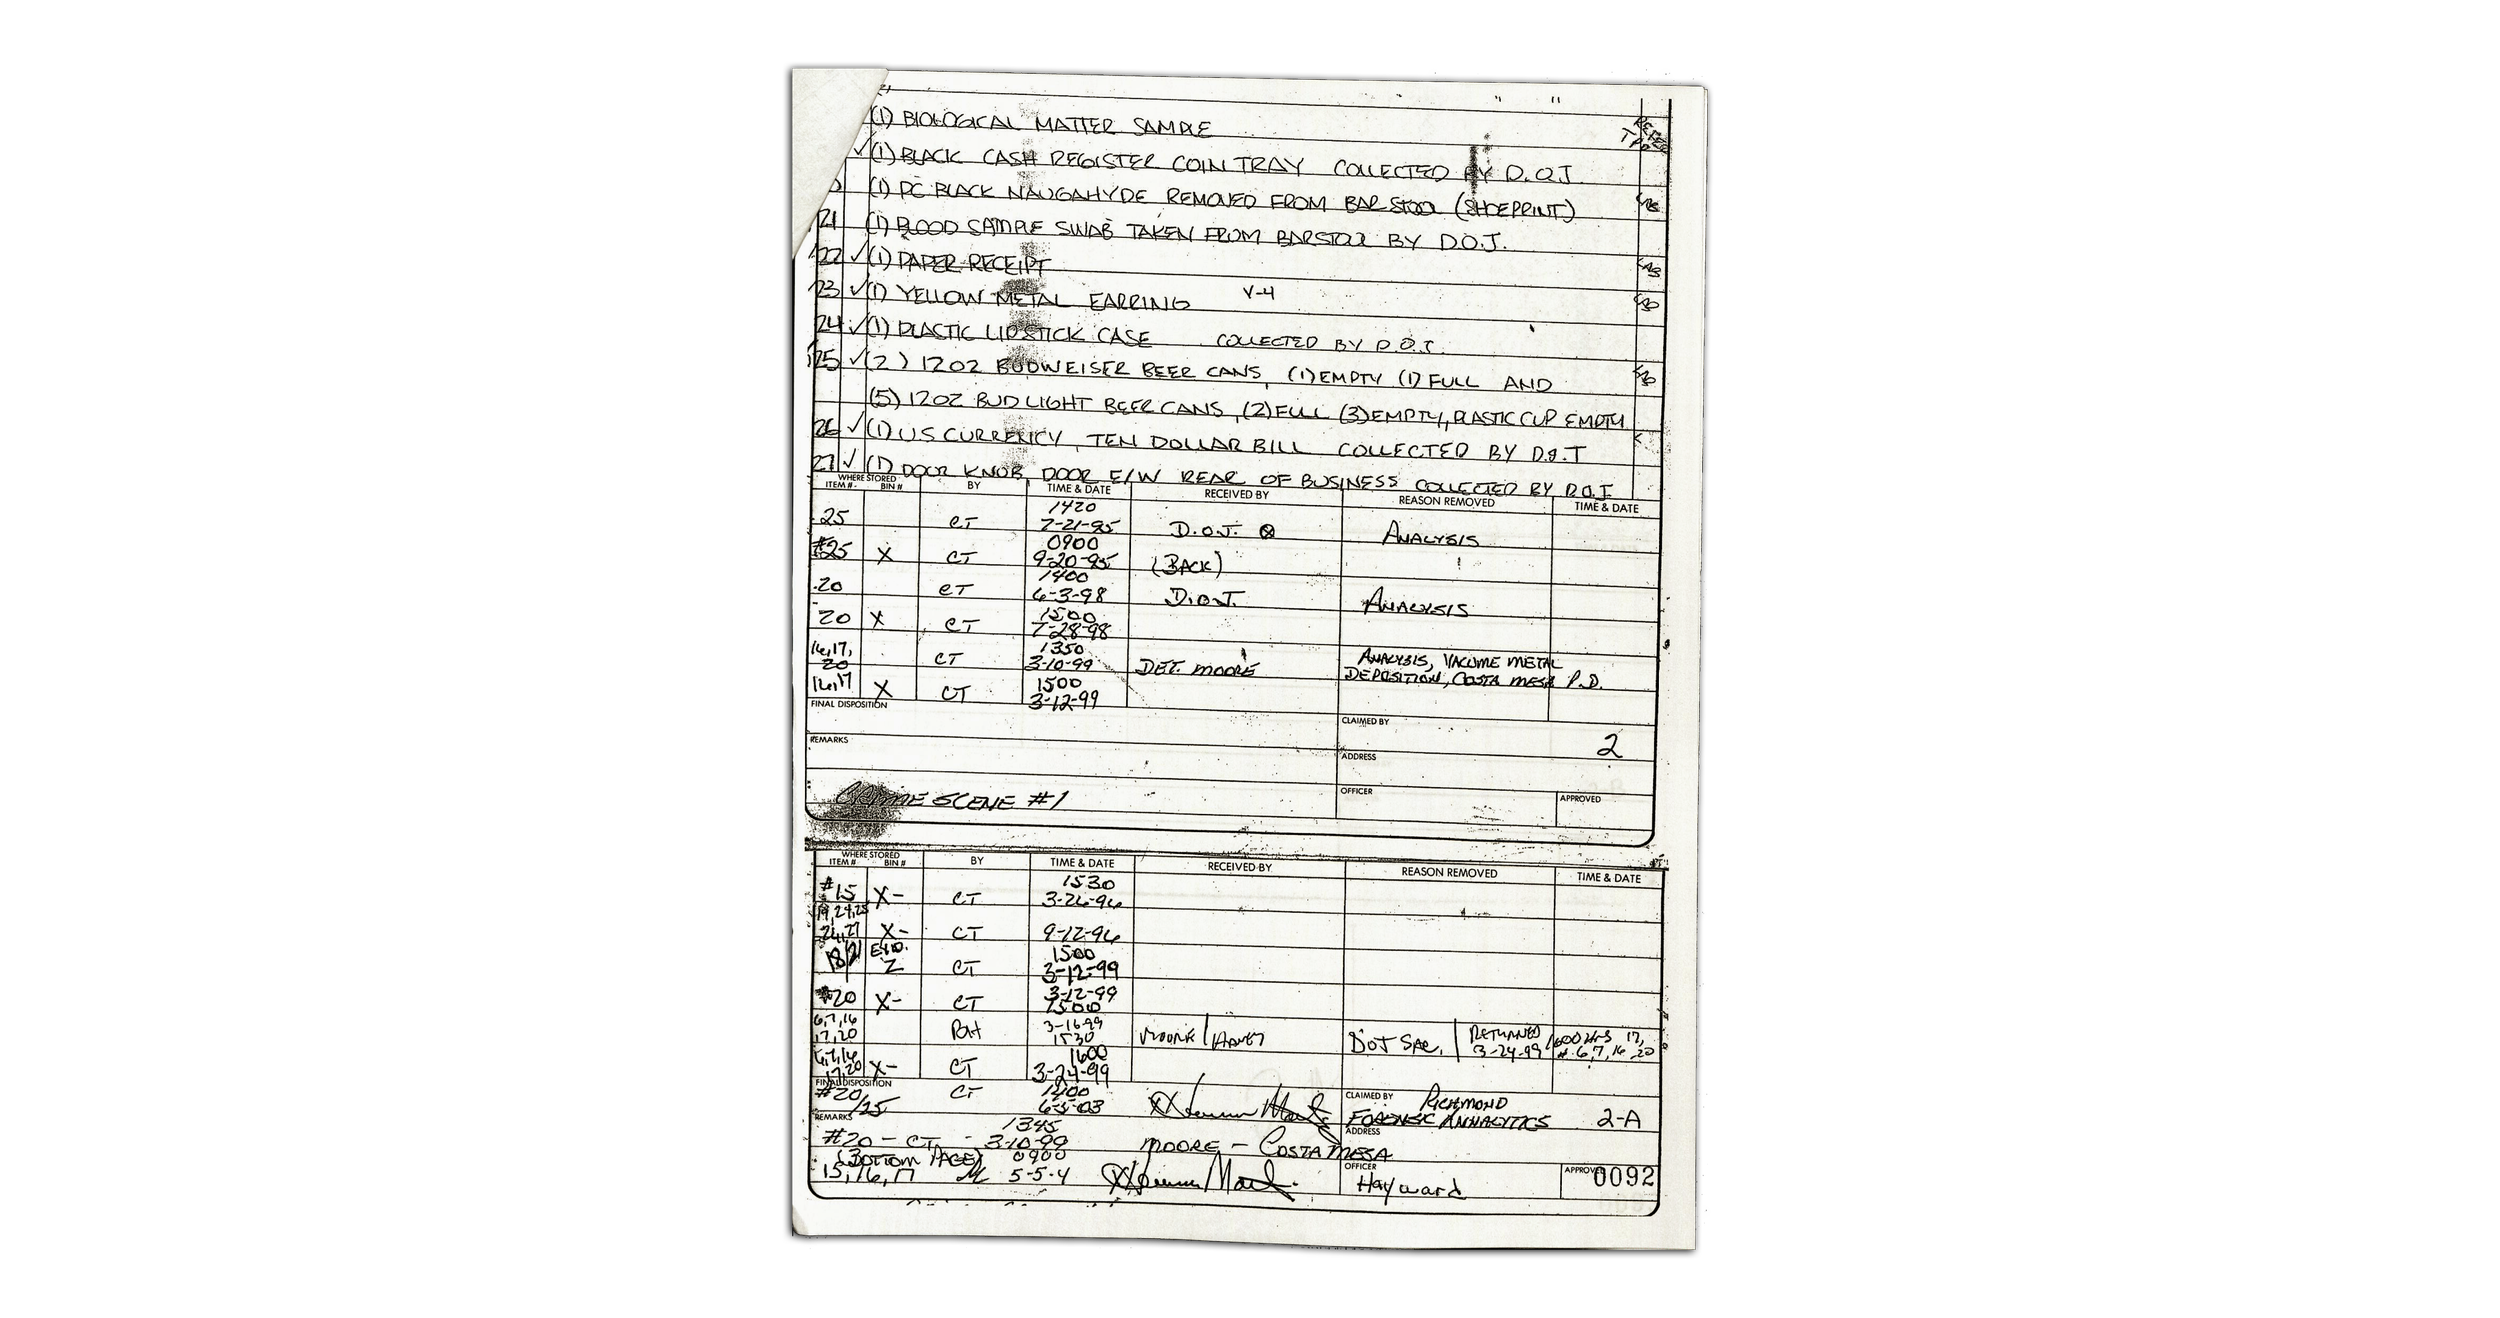 (1) BIOLOGICAL MATTER SAMPLE
✓ (1) BLACK CASH REGISTER COIN TRAY COLLECTED BY D.O.J.
(1) PC BLACK NAUGAHYDE REMOVED FROM BAR STOOL (SHOEPRINT)
21 (1) BLOOD SAMPLE SWAB TAKEN FROM BARSTOOL BY D.O.J.
22 ✓ (1) PAPER RECEIPT
23 ✓ (1) YELLOW METAL EARRING V-4
24 ✓ (1) PLASTIC LIPSTICK CASE COLLECTED BY D.O.J.
25 ✓ (2) 12OZ BUDWEISER BEER CANS, (1) EMPTY (1) FULL AND
(5) 12OZ BUD LIGHT BEER CANS, (2) FULL (3) EMPTY, PLASTIC CUP EMPTY
26 ✓ (1) US CURRENCY, TEN DOLLAR BILL COLLECTED BY D.O.J
27 ✓ (1) DOOR KNOB, DOOR E/W REAR OF BUSINESS COLLECTED BY D.O.J.
WHERE STORED
ITEM # BIN # BY TIME & DATE RECEIVED BY REASON REMOVED TIME & DATE
25 CT 1420 7-21-95 D.O.J. ANALYSIS
#25 X CT 0900 9-20-95 (BACK)
20 CT 1400 6-3-98 D.O.J. ANALYSIS
20 X CT 1500 7-28-98
16,17, 20 CT 1350 3-10-99 DET. MOORE ANALYSIS, VACUME METAL DEPOSITION, COSTA MESA P.D.
16,17 X CT 1500 3-12-99
FINAL DISPOSITION CLAIMED BY
2
REMARKS ADDRESS
CRIME SCENE #1 OFFICER APPROVED
WHERE STORED
ITEM # BIN # BY TIME & DATE RECEIVED BY REASON REMOVED TIME & DATE
#15 X- CT 1530 3-26-96
19,24,25 26,27 X- CT 9-12-96
Z CT 1500 3-12-99
#20 X- CT 3-12-99 1500
6,7,16 17,20 3-16-99 1530 MOORE / DOJ SAC. / RETURNED 3-24-99 1600 HRS 17, #.6,7,16,20
6,7,16 17,20 X- CT 1600 3-24-99
FINAL DISPOSITION CLAIMED BY RICHMOND
#20/15 CT 1400 6-5-03 FORENSIC ANNALYTICS 2-A
REMARKS 1345 ADDRESS
#20 - CT - 3-10-99 MOORE - COSTA MESA
(BOTTOM PAGE) 0900
15,16,17 5-5-4 OFFICER Hayward APPROVED 0092